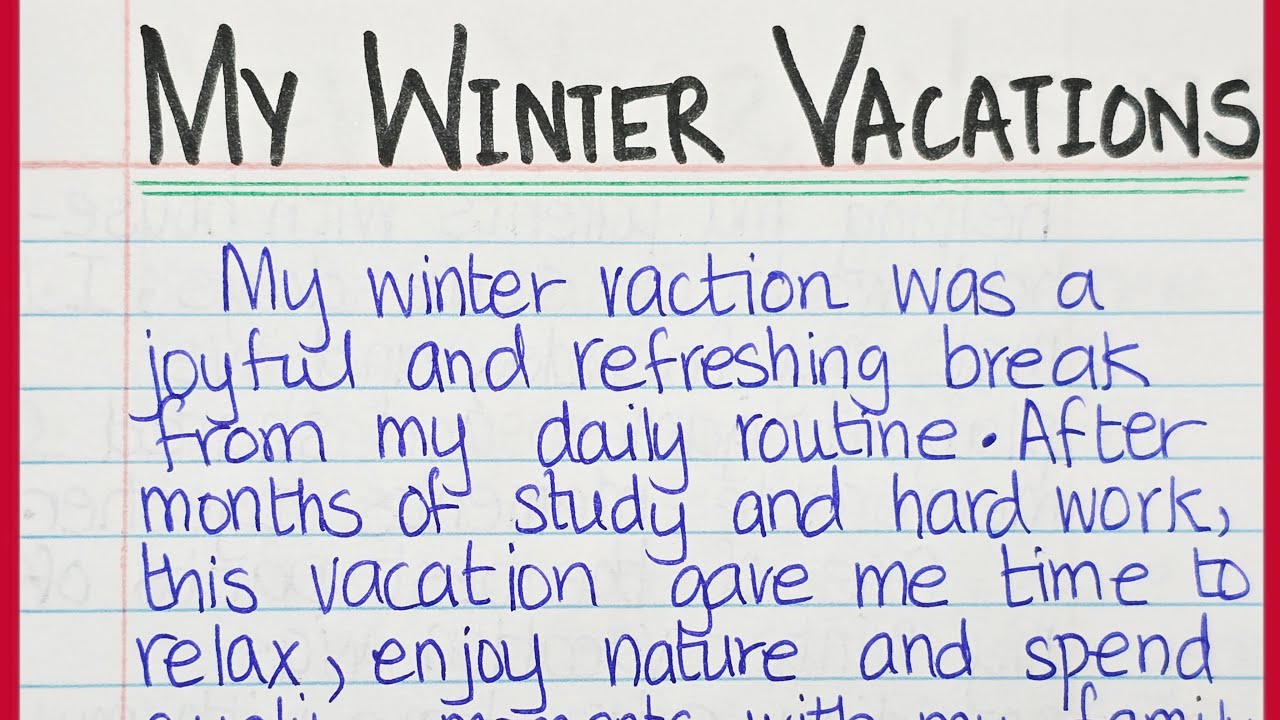 MY WINTER VACATIONS
My winter vaction was a
joyful and refreshing break
from my daily routine. After
months of study and hard work,
this vacation gave me time to
relax, enjoy nature and spend
moments with my family